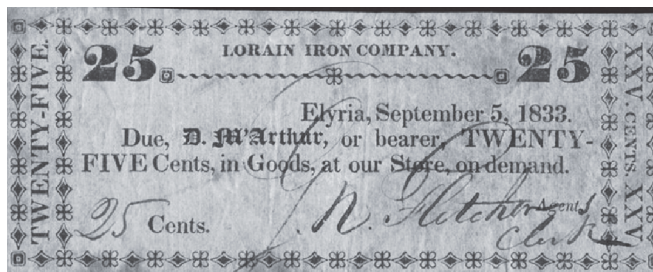 LORAIN IRON COMPANY.
25 25
Elyria, September 5, 1833.
Due, D. M'Arthur, or bearer, TWENTY-
FIVE Cents, in Goods, at our Store, on demand.
25 Cents. N. Fletcher Agent
Clerk
TWENTY-FIVE.
XXV. CENTS. XXV